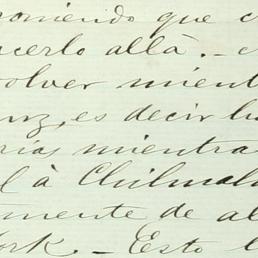 poniendo que
hacerlo allà. –
volver mient
uz, es decir ha
rias mientra
l à Chilmal
mente de al
ork. – Esto l